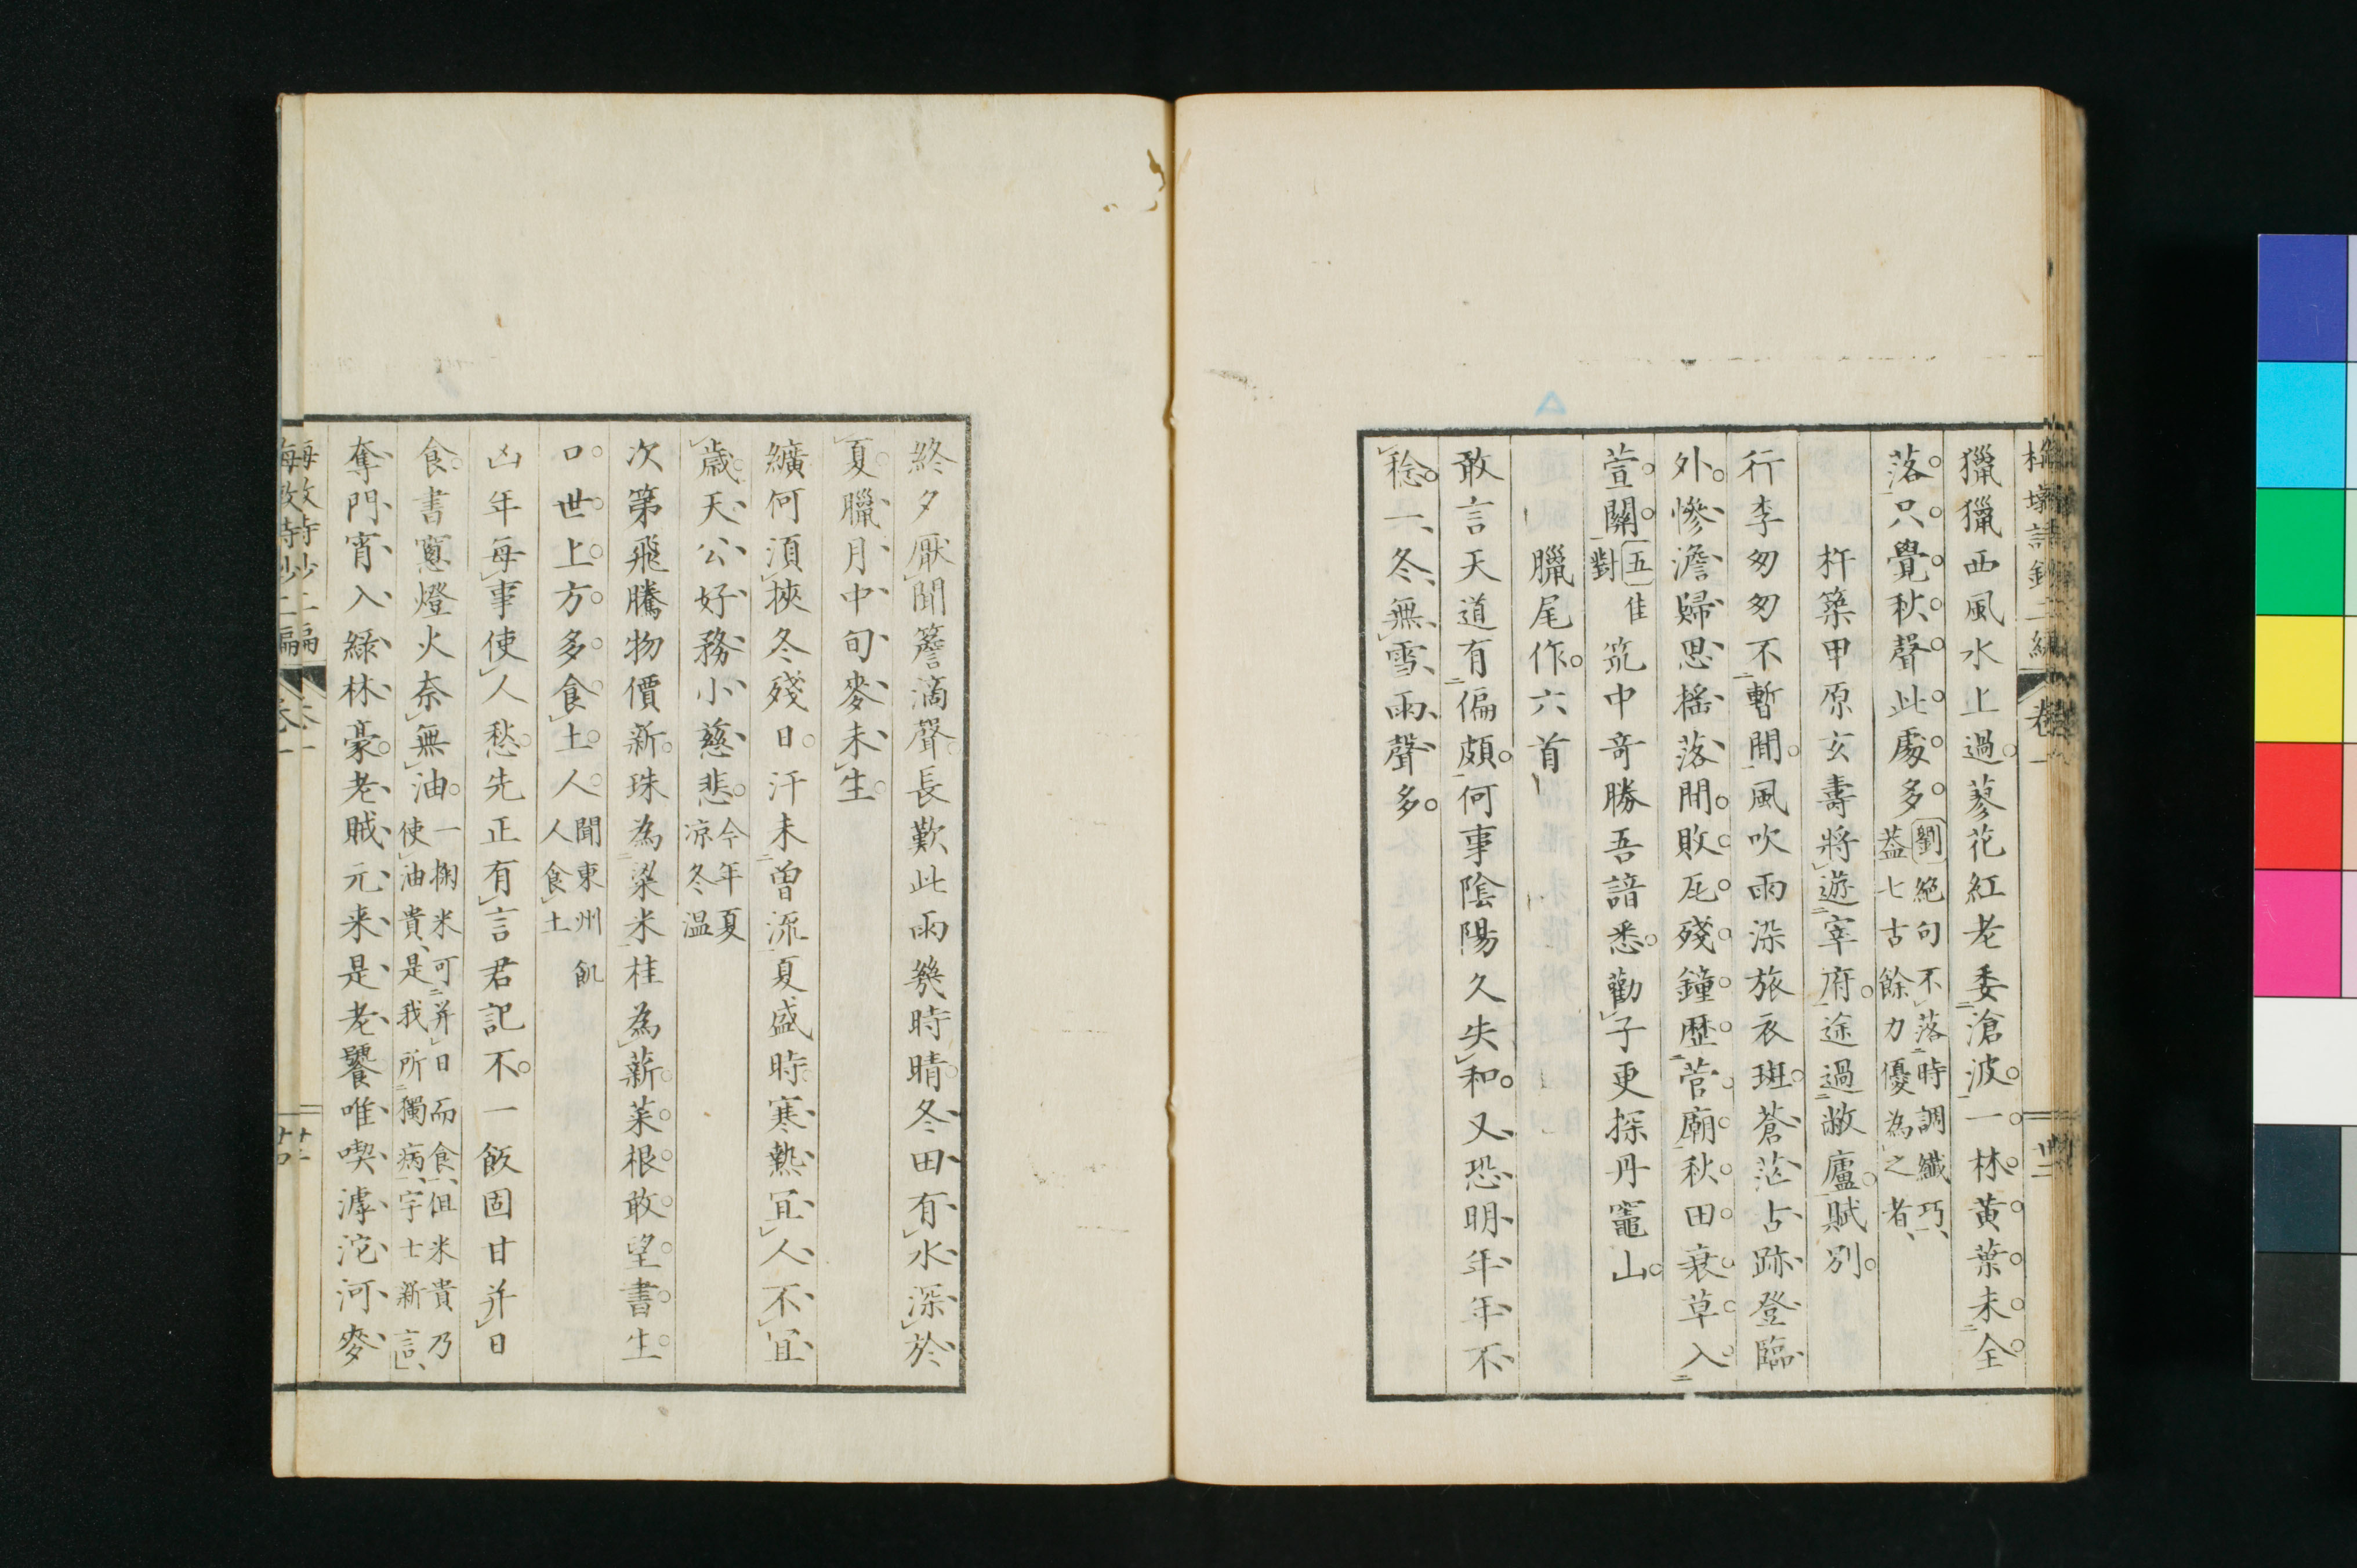 梅墩詩鈔二編 卷一
獵獵西風水上過。蓼花紅老委滄波。一林黃葉未全
落。只覺秋聲此處多。劉絕句不落時調纖巧、
蓋七古餘力優為之者、
杵築甲原玄壽將遊宰府。途過敝廬。賦別。
行李匆匆不暫閒。風吹雨染旅衣斑。蒼茫占跡登臨
外。慘澹歸思搖落間。敗瓦殘鐘歷菅廟。秋田衰草入
萱關。五佳
對筑中奇勝吾諳悉。勸子更探丹竈山。
臘尾作。六首
敢言天道有偏頗。何事陰陽久失和。又恐明年年不
稔。一冬無雪雨聲多。
終夕厭聞簷滴聲。長歎此雨幾時晴。冬田有水深於
夏。臘月中旬麥未生。
纊何須挾冬殘日。汗未曾流夏盛時。寒熱宜人不宜
歲。天公好務小慈悲。今年夏
涼冬温
次第飛騰物價新。珠為粱米桂為薪。菜根敢望書生
口。世上方多食土人。聞東州飢
人食土
凶年每事使人愁。先正有言君記不。一飯固甘并日
食。書窻燈火奈無油。一掬米可并日而食、但米貴乃
使油貴、是我所獨病、宇士新言、
奪門宵入綠林豪。老賊元来是老饕。唯喫滹沱河麥